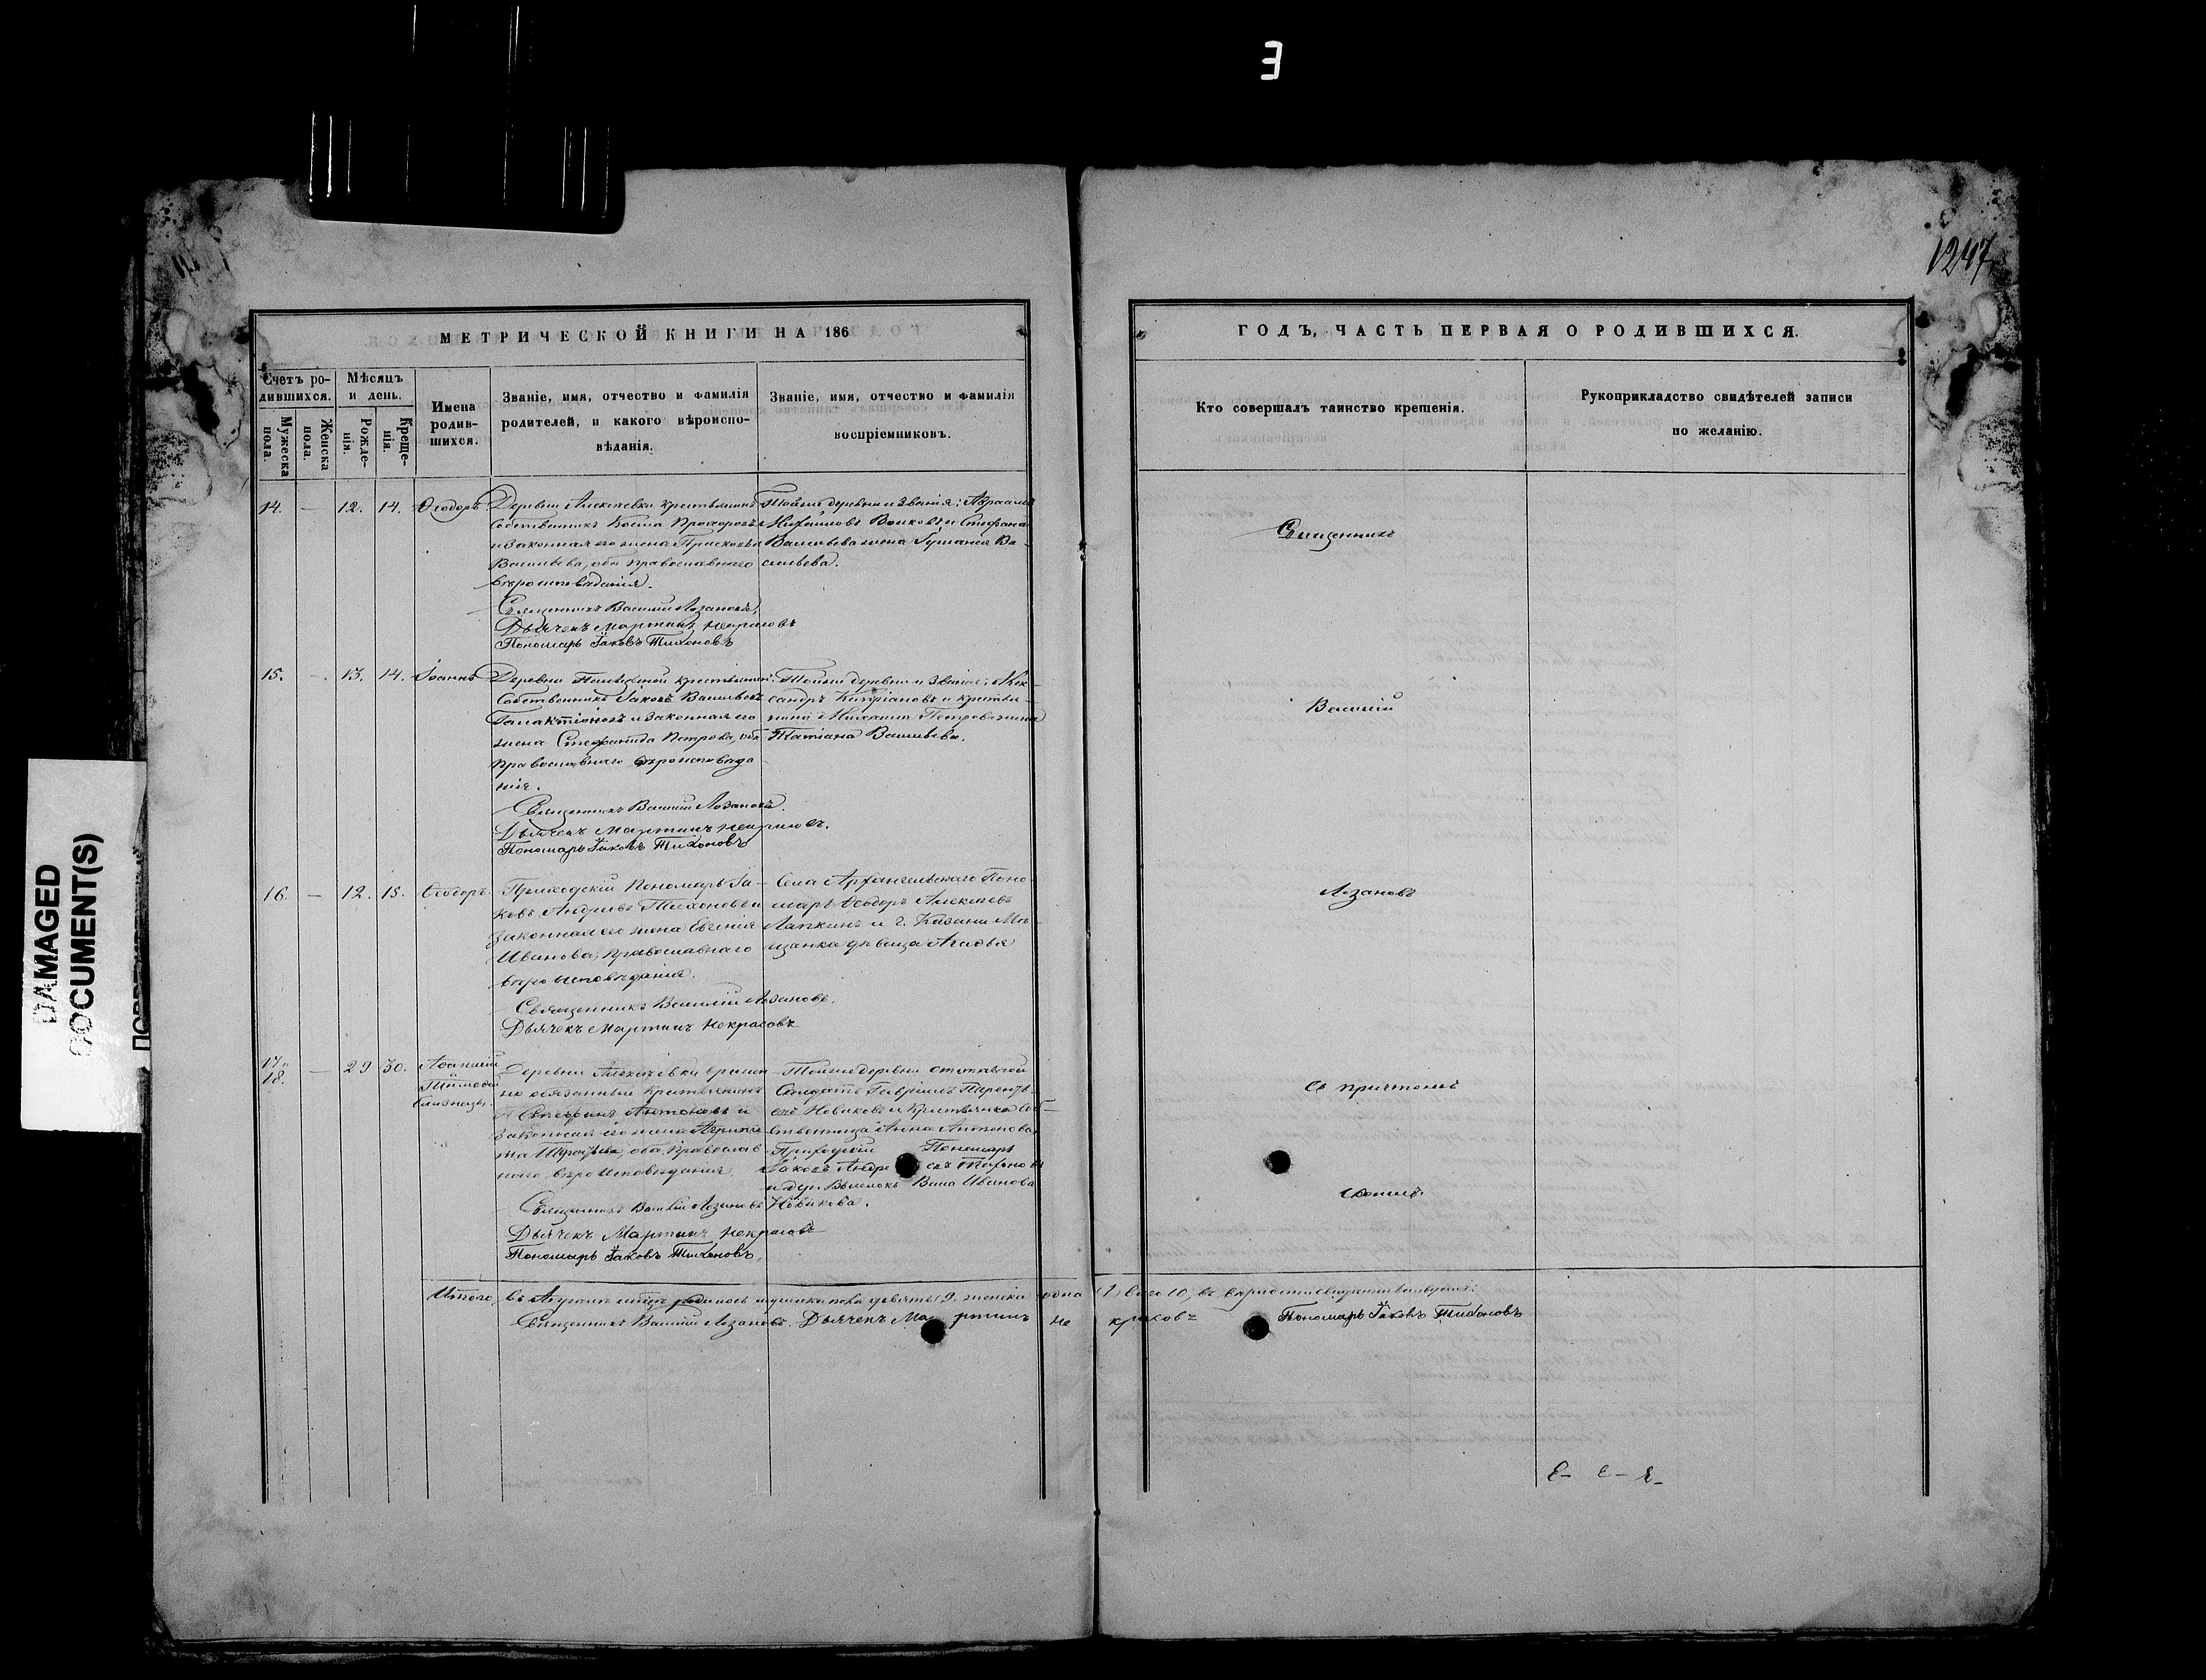 1247
МЕТРИЧЕСКОЙ КНИГИ НА 186
Счетъ ро-
дившихся.
Мужеска
пола.
Женска
пола.
Мѣсяцъ
и день.
Рожде-
нія.
Креще-
нія.
Имена
родив-
шихся.
Званіе, имя, отчество и фамилія
родителей, и какого вѣроиспо-
вѣданія.
Званіе, имя, отчество и фамилія
воспріемниковъ.
14. — 12. 14. Ѳеодоръ
Деревни Алексѣевки крестьянинъ
Собственникъ Косма Прохоровъ
и законная его жена Прасковья
Васильева, оба православнаго
вѣроисповѣданія.
Священникъ Василій Лозановъ,
Дьячекъ Мартинъ Некрасовъ
Пономарь Іаковъ Тихоновъ
Тойже деревни и званія: Авраамъ
Волковъ и Стефана
Васильева жена Ва-
сильева.
15. — 13. 14. Іоаннъ
Деревни крестьянинъ
Собственникъ Іаковъ Васильевъ
Галактіоновъ и законная его
жена Стефанида Петрова, оба
православнаго вѣроисповѣда-
нія.
Священникъ Василій Лозановъ.
Дьячекъ Мартинъ Некрасовъ.
Пономарь Іаковъ Тихоновъ
Тойже деревни и званія: Алек-
сандръ Кипріановъ и крестья-
нина Михаила Петрова жена
Татіана Васильева.
16. — 12. 15. Ѳеодоръ.
Приходскій Пономарь Іа-
ковъ Андреевъ Тихоновъ и
законная его жена Евгенія
Иванова, православнаго
вѣроисповѣданія.
Священникъ Василій Лозановъ.
Дьячекъ Мартинъ Некрасовъ
Села Архангельскаго Поно-
марь Ѳеодоръ Алексѣевъ
Лапкинъ и г. Казани Мѣ-
щанка дѣвица
17.
18. — 29 30.
близнецы.
Деревни Алексѣевки времен-
но обязанный крестьянинъ
Антоновъ и
законная его жена
оба православ-
наго вѣроисповѣданія.
Священникъ Василій Лозановъ
Дьячекъ Мартинъ Некрасовъ
Пономарь Іаковъ Тихоновъ.
Тойже деревни отставной
Солдатъ Гавріилъ Терентье-
въ Новиковъ и крестьянка соб-
ственница Анна Антонова,
Приходскій Пономарь
Іаковъ Андреевъ Тихоновъ
Иванова
Новикова.
Итого въ Августѣ родилось мужеска пола девять 9, женска одна (1) всего 10,
Священникъ Василій Лозановъ. Дьячекъ Мартинъ Некрасовъ Пономарь Іаковъ Тихоновъ
ГОДЪ, ЧАСТЬ ПЕРВАЯ О РОДИВШИХСЯ.
Кто совершалъ таинство крещенія.
Рукоприкладство свидѣтелей записи
по желанію.
Священникъ
Василій
Лозановъ
Съ причтомъ
своимъ.
DAMAGED
DOCUMENT(S)